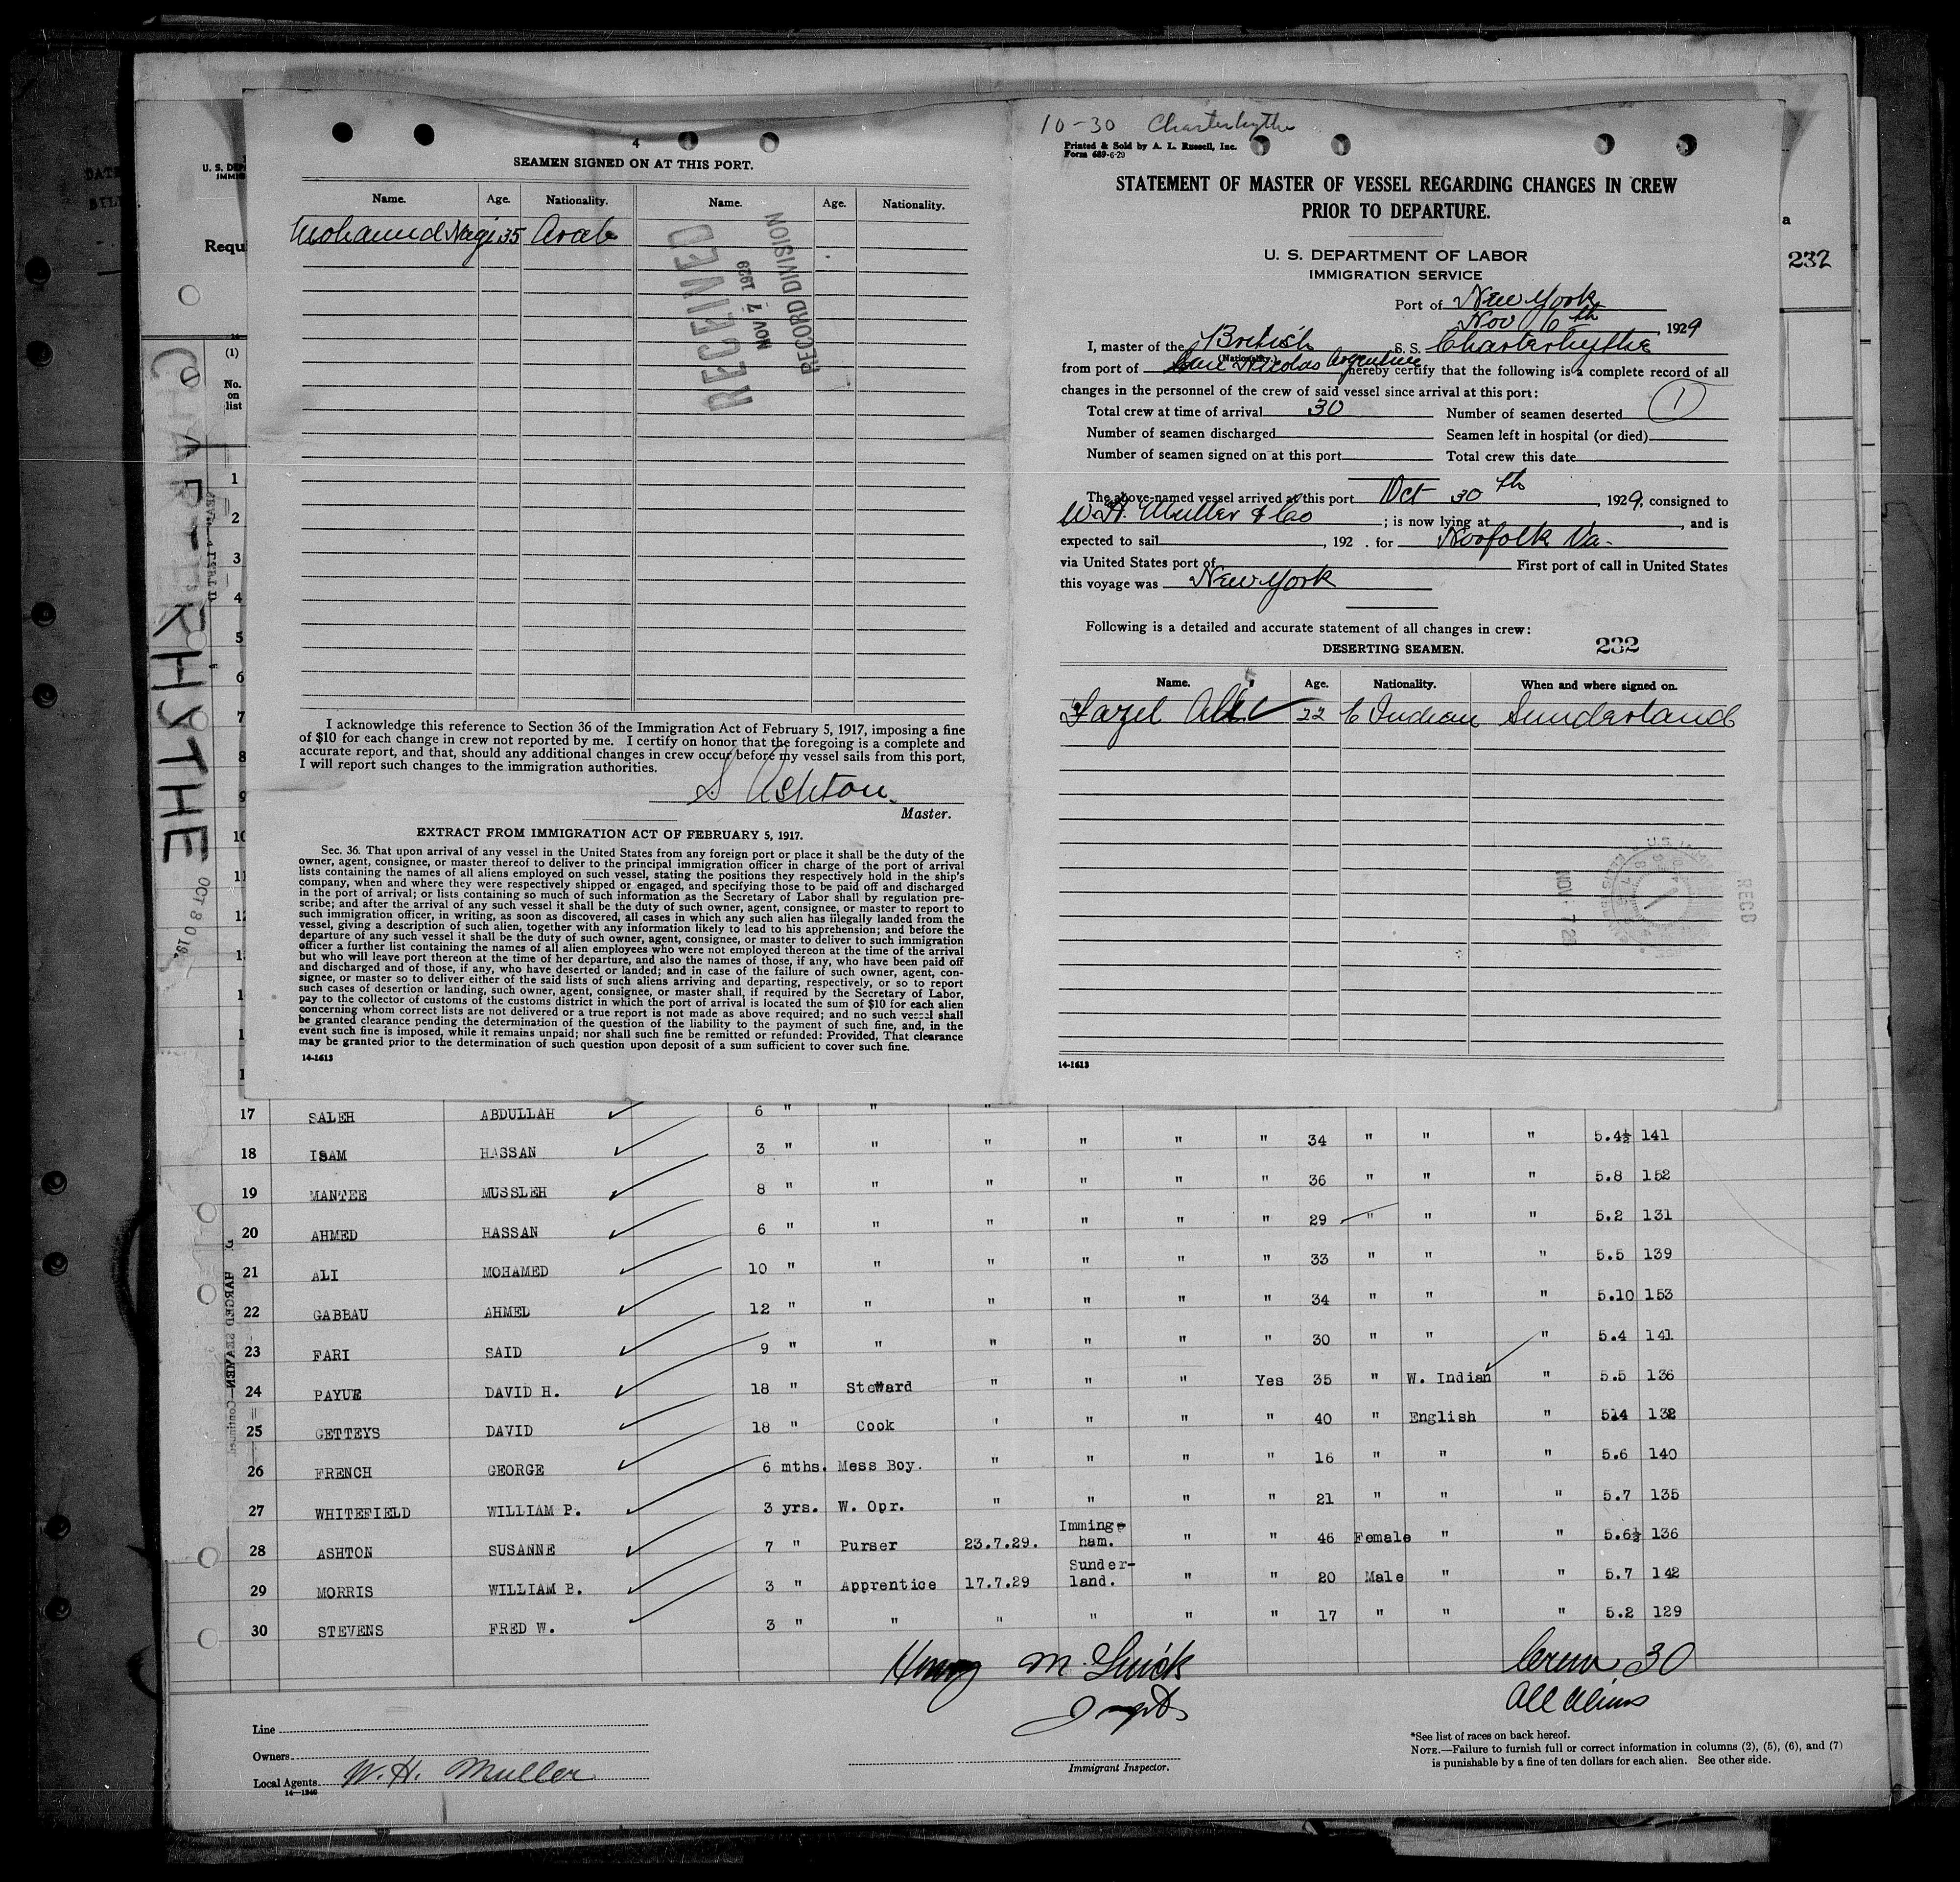 4
SEAMEN SIGNED ON AT THIS PORT.
Name. Age. Nationality. Name. Age. Nationality.
Mohamed Nagi 35 Arab
RECEIVED
NOV 7 1929
RECORD DIVISION
I acknowledge this reference to Section 36 of the Immigration Act of February 5, 1917, imposing a fine
of $10 for each change in crew not reported by me. I certify on honor that the foregoing is a complete and
accurate report, and that, should any additional changes in crew occur before my vessel sails from this port,
I will report such changes to the immigration authorities.
S Ashton
Master.
EXTRACT FROM IMMIGRATION ACT OF FEBRUARY 5, 1917.
Sec. 36. That upon arrival of any vessel in the United States from any foreign port or place it shall be the duty of the
owner, agent, consignee, or master thereof to deliver to the principal immigration officer in charge of the port of arrival
lists containing the names of all aliens employed on such vessel, stating the positions they respectively hold in the ship's
company, when and where they were respectively shipped or engaged, and specifying those to be paid off and discharged
in the port of arrival; or lists containing so much of such information as the Secretary of Labor shall by regulation pre-
scribe; and after the arrival of any such vessel it shall be the duty of such owner, agent, consignee, or master to report to
such immigration officer, in writing, as soon as discovered, all cases in which any such alien has illegally landed from the
vessel, giving a description of such alien, together with any information likely to lead to his apprehension; and before the
departure of any such vessel it shall be the duty of such owner, agent, consignee, or master to deliver to such immigration
officer a further list containing the names of all alien employees who were not employed thereon at the time of the arrival
but who will leave port thereon at the time of her departure, and also the names of those, if any, who have been paid off
and discharged and of those, if any, who have deserted or landed; and in case of the failure of such owner, agent, con-
signee, or master so to deliver either of the said lists of such aliens arriving and departing, respectively, or so to report
such cases of desertion or landing, such owner, agent, consignee, or master shall, if required by the Secretary of Labor,
pay to the collector of customs of the customs district in which the port of arrival is located the sum of $10 for each alien
concerning whom correct lists are not delivered or a true report is not made as above required; and no such vessel shall
be granted clearance pending the determination of the question of the liability to the payment of such fine, and, in the
event such fine is imposed, while it remains unpaid; nor shall such fine be remitted or refunded: Provided, That clearance
may be granted prior to the determination of such question upon deposit of a sum sufficient to cover such fine.
14-1613
10-30 Charterhythe
Printed & Sold by A. L. Russell, Inc.
Form 689-6-29
STATEMENT OF MASTER OF VESSEL REGARDING CHANGES IN CREW
PRIOR TO DEPARTURE.
U. S. DEPARTMENT OF LABOR
IMMIGRATION SERVICE
Port of New York
Nov 6th, 1929
I, master of the British S. S. Charterhythe
(Nationality.)
from port of San Nicolas Argentine hereby certify that the following is a complete record of all
changes in the personnel of the crew of said vessel since arrival at this port:
Total crew at time of arrival 30 Number of seamen deserted 1
Number of seamen discharged Seamen left in hospital (or died)
Number of seamen signed on at this port Total crew this date
The above-named vessel arrived at this port Oct 30th, 1929, consigned to
W. H. Muller & Co ; is now lying at , and is
expected to sail , 192 . for Norfolk Va.
via United States port of First port of call in United States
this voyage was New York
Following is a detailed and accurate statement of all changes in crew:
DESERTING SEAMEN. 232
Name. Age. Nationality. When and where signed on.
Fazel Alli 22 E Indian Sunderland
NOV 7 29
RECD
14-1613
a
232
U. S. DEP
IMMIG
Requ
(1)
No.
on
list
CHARTERHYTHE
OCT 30 192
1
2
3
4
5
6
7
8
9
10
11
12
17 SALEH ABDULLAH 6 " " "
18 ISAM HASSAN 3 " " " " " " 34 " " " 5.4½ 141
19 MANTEE MUSSLEH 8 " " " " " " 36 " " " 5.8 152
20 AHMED HASSAN 6 " " " " " " 29 " " " 5.2 131
21 ALI MOHAMED 10 " " " " " " 33 " " " 5.5 139
22 GABBAU AHMEL 12 " " " " " " 34 " " " 5.10 153
23 FARI SAID 9 " " " " " " 30 " " " 5.4 141
24 PAYUE DAVID H. 18 " Steward " " " Yes 35 " W. Indian " 5.5 136
25 GETTEYS DAVID 18 " Cook " " " " 40 " English " 514 132
26 FRENCH GEORGE 6 mths. Mess Boy. " " " " 16 " " " 5.6 140
27 WHITEFIELD WILLIAM P. 3 yrs. W. Opr. " " " " 21 " " " 5.7 135
28 ASHTON SUSANNE 7 " Purser 23.7.29. Imming-ham. " " 46 Female " " 5.6½ 136
29 MORRIS WILLIAM B. 3 " Apprentice 17.7.29 Sunder-land. " " 20 Male " " 5.7 142
30 STEVENS FRED W. 3 " " " " " " 17 " " " 5.2 129
Crew 30
All Aliens
Line
Owners
Local Agents W. H. Muller
14-1240
Immigrant Inspector.
*See list of races on back hereof.
NOTE.—Failure to furnish full or correct information in columns (2), (5), (6), and (7)
is punishable by a fine of ten dollars for each alien. See other side.